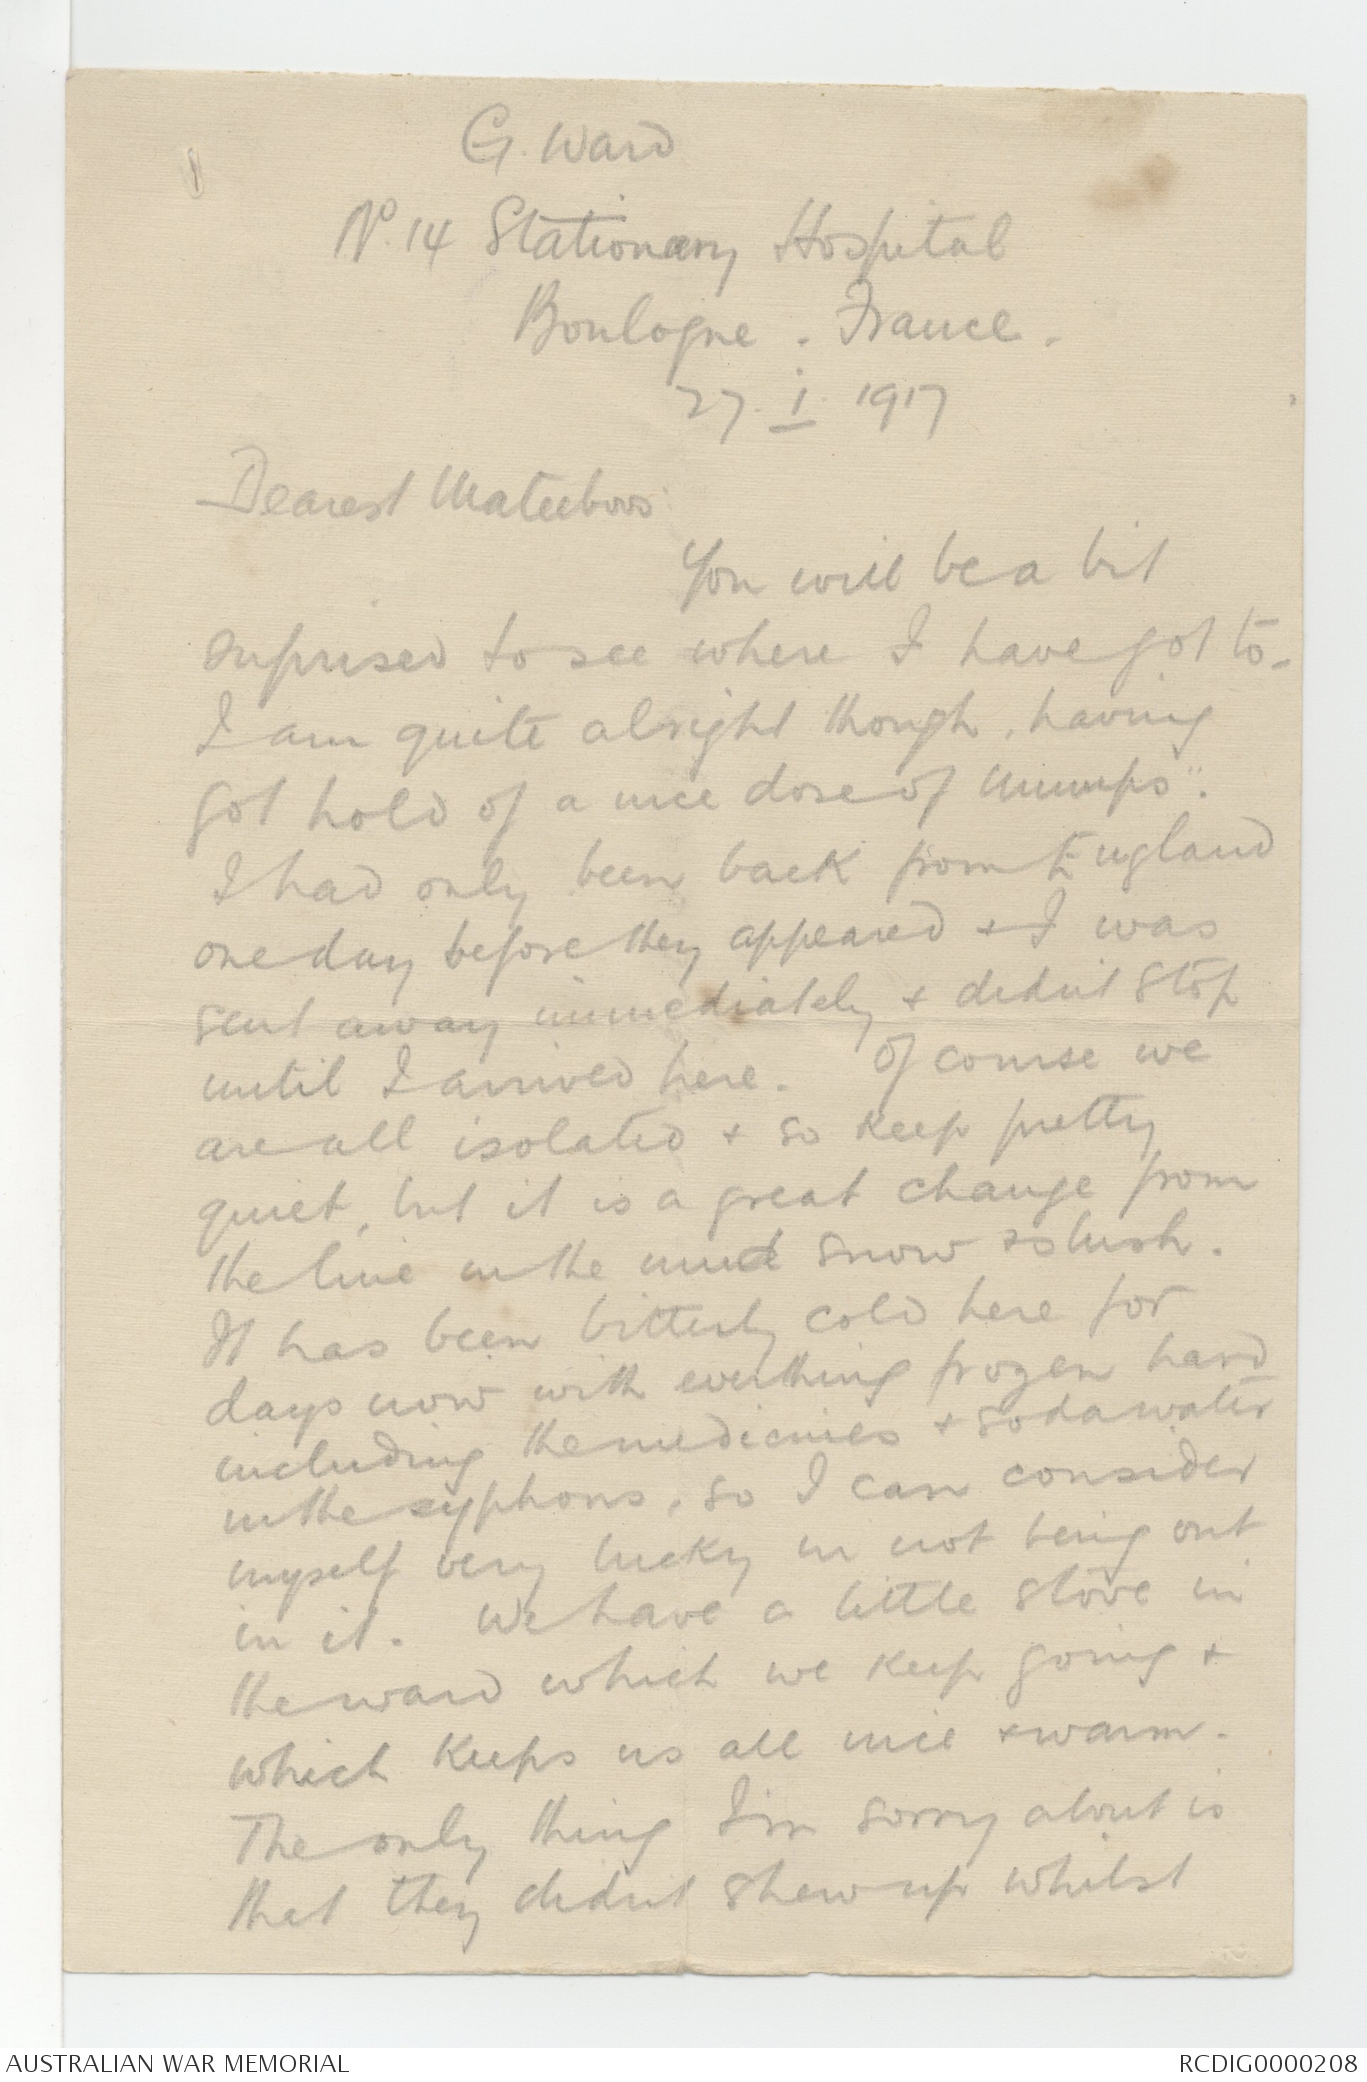 G. Ward
No. 14 Stationary Hospital
Boulogne. France.
27. i. 1917
Dearest Materboos
You will be a bit
suprised to see where I have got to.
I am quite alright though, having
got hold of a nice dose of Mumps".
I had only been back from England
one day before they appeared & I was
sent away immediately & didn't stop
until I arrived here. Of course we
are all isolated & so keep pretty
quiet, but it is a great change from
the line in the mud snow & slush.
It has been bitterly cold here for
days now with everthing frozen hard
including the medicines & sodawater
in the syphons, so I can consider
myself very lucky in not being out
in it. We have a little stove in
the ward which we keep going &
which keeps us all nice & warm.
The only thing I'm sorry about is
that they didnt shew up whilst
AUSTRALIAN WAR MEMORIAL
RCDIG0000208